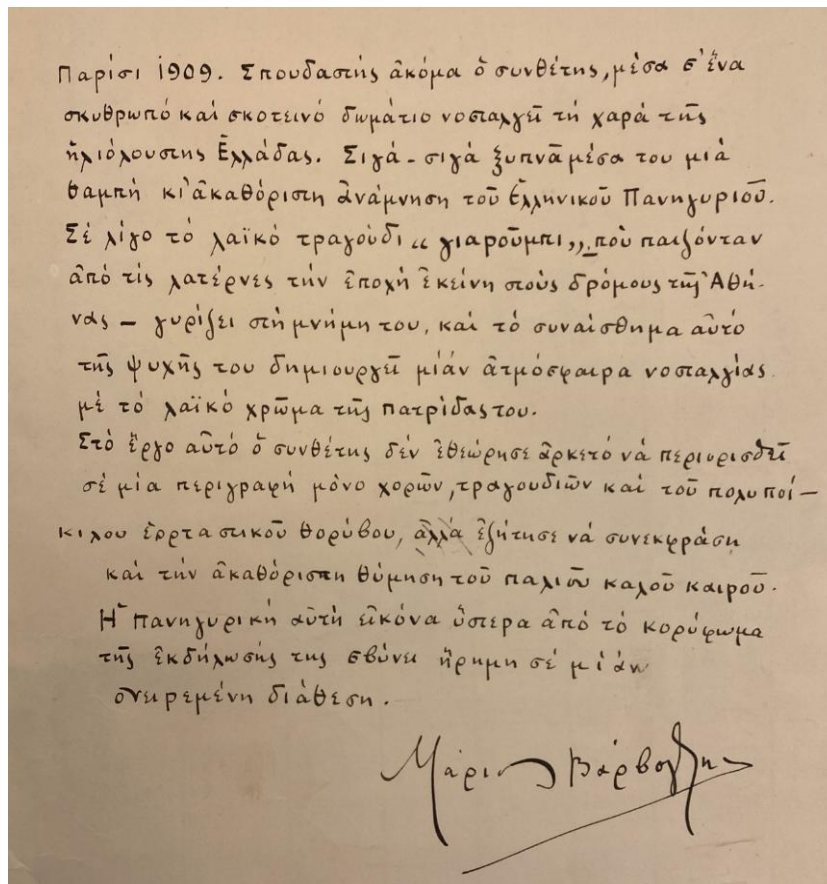 Παρίσι 1909. Σπουδαστής ἀκόμα ὁ συνθέτης, μέσα σ' ἕνα
σκυθρωπό καί σκοτεινό δωμάτιο νοσταλγεῖ τή χαρά τῆς
ἡλιόλουστης Ἑλλάδας. Σιγά-σιγά ξυπνᾶ μέσα του μιά
θαμπή κι' ἀκαθόριστη ἀνάμνηση τοῦ Ἑλληνικοῦ Πανηγυριοῦ.
Σέ λίγο τό λαϊκό τραγούδι „γιαροῦμπι„, πού παιζόνταν
ἀπό τίς λατέρνες τήν ἐποχή ἐκείνη στούς δρόμους τῆς Ἀθή-
νας – γυρίζει στή μνήμη του, καί τό συναίσθημα αὐτό
τῆς ψυχῆς του δημιουργεῖ μίαν ἀτμόσφαιρα νοσταλγίας
μέ τό λαϊκό χρῶμα τῆς πατρίδας του.
Στό ἔργο αὐτό ὁ συνθέτης δέν ἐθεώρησε ἀρκετό νά περιορισθεῖ
σέ μία περιγραφή μόνο χορῶν, τραγουδιῶν καί τοῦ πολυποί-
κιλου ἑορταστικοῦ θορύβου, ἀλλά ἐζήτησε νά συνεκφράση
καί τήν ἀκαθόριστη θύμηση τοῦ παλιοῦ καλοῦ καιροῦ.
Ἡ πανηγυρική αὐτή εἰκόνα ὕστερα ἀπό τό κορύφωμα
τῆς ἐκδήλωσής της σβύνει ἤρημη σέ μίαν
ὀνειρεμένη διάθεση.
Μάριος Βάρβογλης